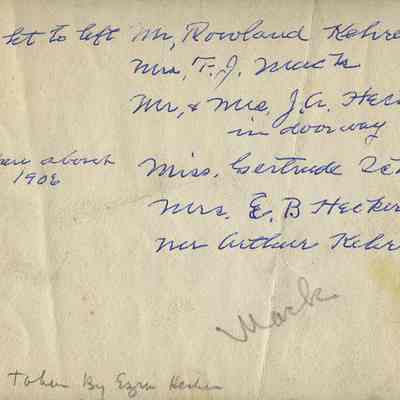 ht to left Mr, Rowland Kehre
Mrs, T. J. Mack
Mr, & Mrs, J. A. Hec
in doorway
about
1906
Miss, Gertrude
Mrs. E. B Hecker
Mr Arthur Kehr
Mack
Taken By Ezra Hecker